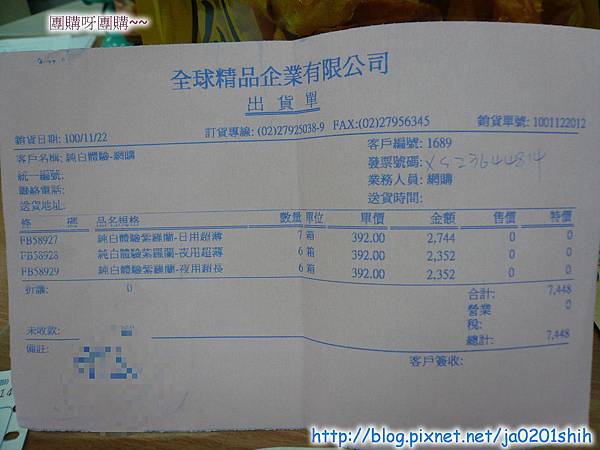 團購呀團購~~
全球精品企業有限公司
出 貨 單
銷貨日期: 100/11/22 訂貨專線: (02)27925038-9 FAX:(02)27956345 銷貨單號: 1001122012
客戶名稱: 純白體驗-網購 客戶編號: 1689
統一編號: 發票號碼: XS23644814
聯絡電話: 業務人員: 網購
送貨地址: 送貨時間:
條 碼 品名規格 數量 單位 單價 金額 售價 特價
FB58927 純白體驗紫羅蘭-日用超薄 7 箱 392.00 2,744 0 0
FB58928 純白體驗紫羅蘭-夜用超薄 6 箱 392.00 2,352 0 0
FB58929 純白體驗紫羅蘭-夜用超長 6 箱 392.00 2,352 0 0
折讓: 0 合計: 7,448
營業稅: 0
未收款: 總計: 7,448
備註:
客戶簽收:
14
http://blog.pixnet.net/ja0201shih